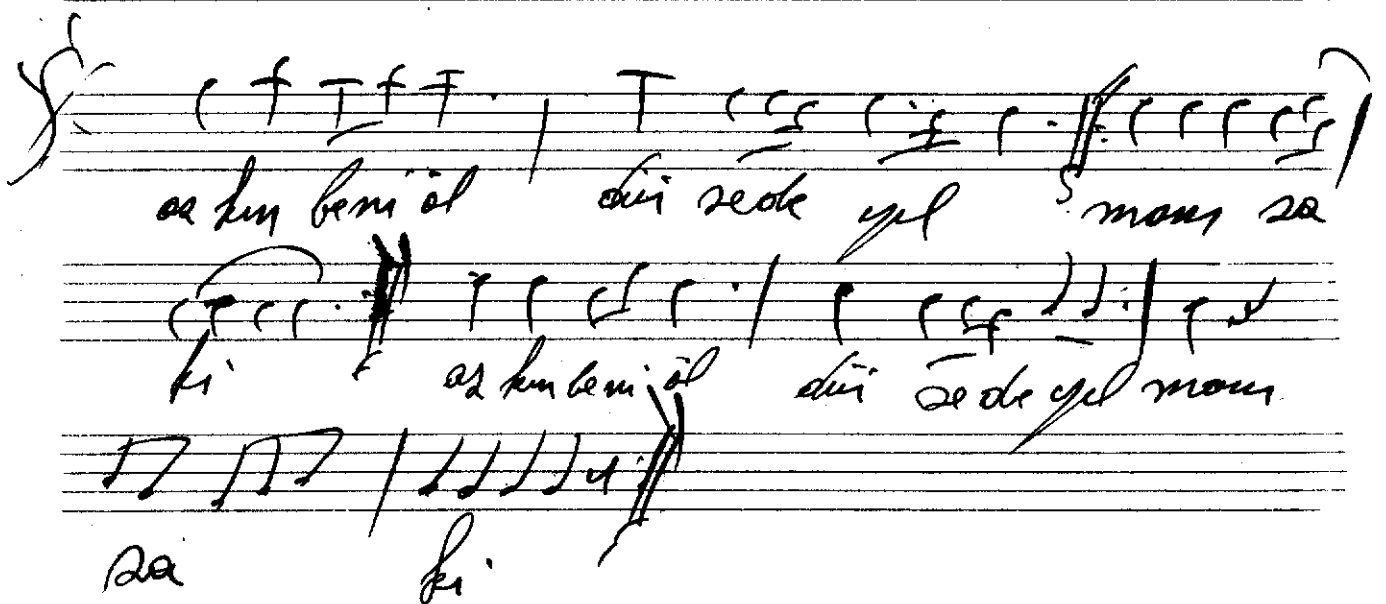 aş kın beni öl dür se de yıl mam sa
ki aş kın beni öl dür se de yıl mam
sa ki